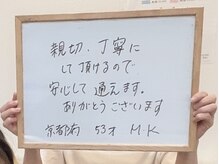 親切、丁寧に
して頂けるので
安心して通えます。
ありがとうございます
京都南 53才 MK